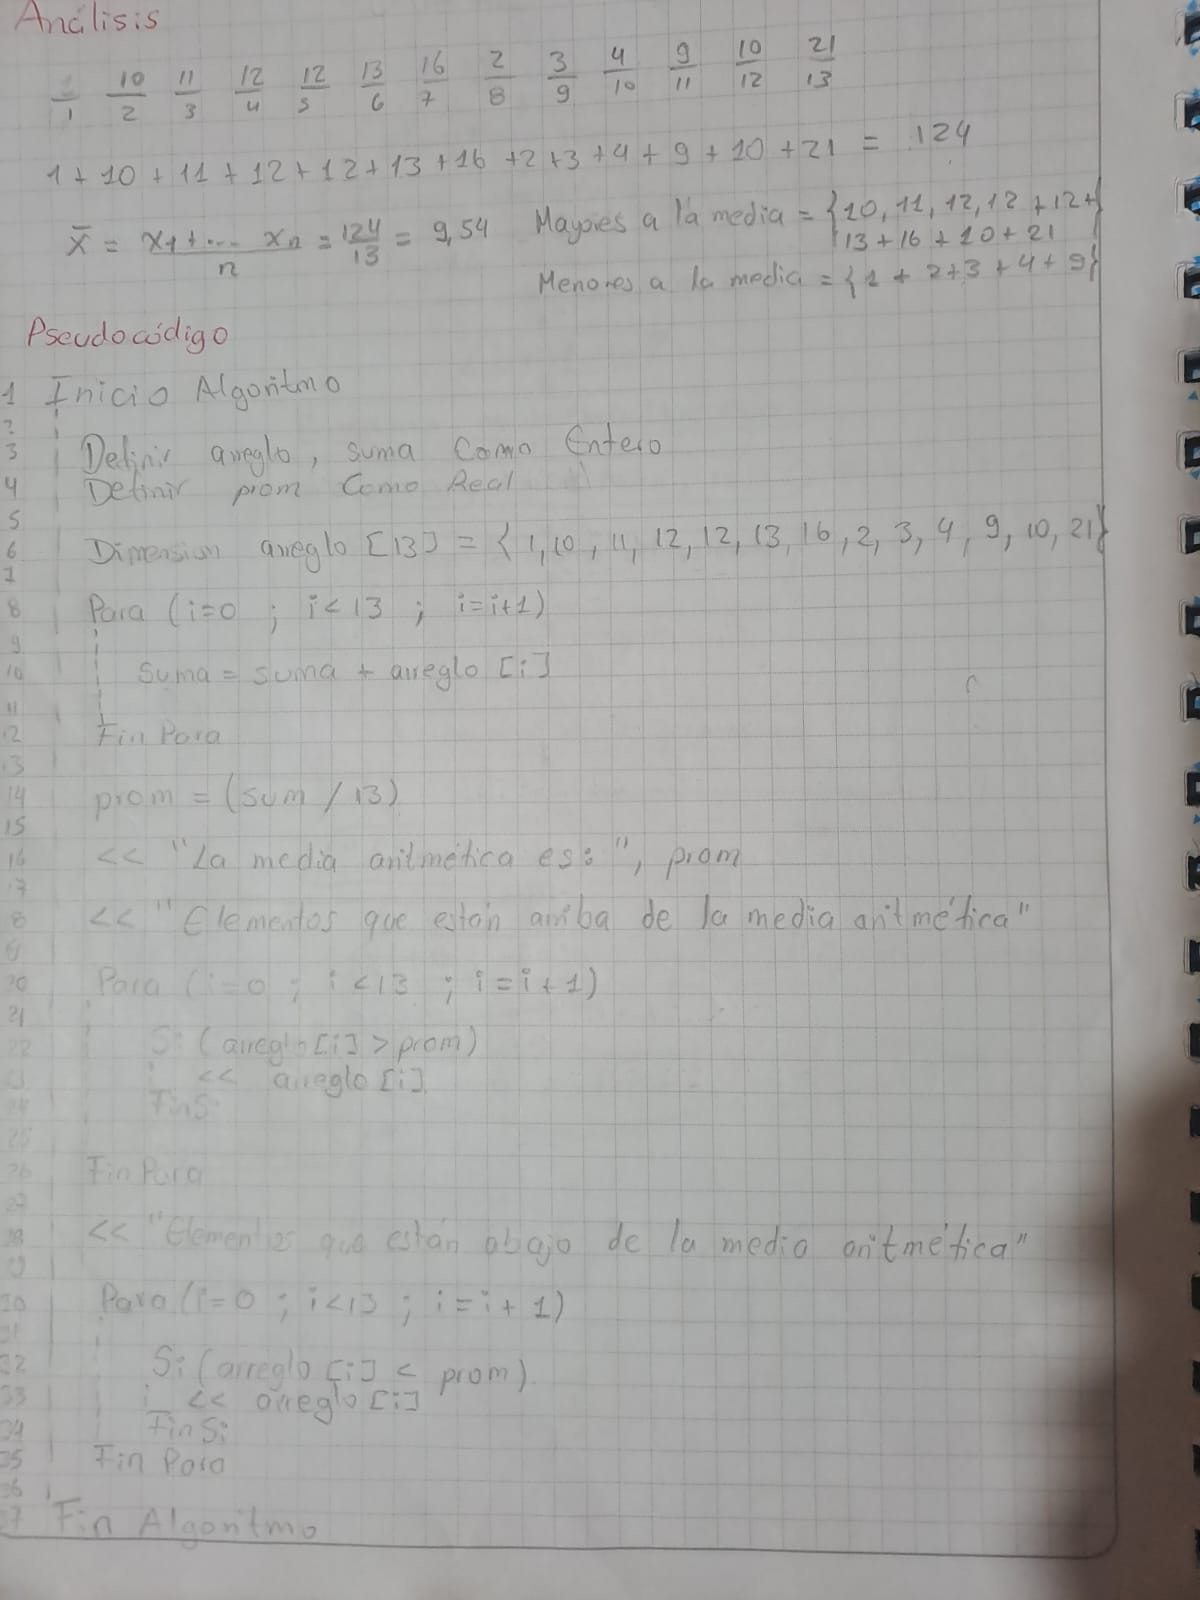 Análisis
1/1 10/2 11/3 12/4 12/5 13/6 16/7 2/8 3/9 4/10 9/11 10/12 21/13
1 + 10 + 11 + 12 + 12 + 13 + 16 + 2 + 3 + 4 + 9 + 10 + 21 = 124
x̄ = x1 + ... xn / n = 124/13 = 9,54 Mayores a la media = {10, 11, 12, 12 + 12 +
13 + 16 + 10 + 21
Menores a la media = {1 + 2 + 3 + 4 + 9}
Pseudocódigo
1 Inicio Algoritmo
2
3 Definir arreglo, suma Como Entero
4 Definir prom Como Real
5
6 Dimension arreglo [13] = {1, 10, 11, 12, 12, 13, 16, 2, 3, 4, 9, 10, 21}
7
8 Para (i=0 ; i<13 ; i=i+1)
9
10 Suma = suma + arreglo [i]
11
12 Fin Para
13
14 prom = (sum / 13)
15
16 << "La media aritmética es: ", prom
17
18 << "Elementos que están arriba de la media aritmética"
19
20 Para (i=0 ; i<13 ; i=i+1)
21
22 Si (arreglo [i] > prom)
23 << arreglo [i]
24 Fin Si
25
26 Fin Para
27
28 << "Elementos que están abajo de la media aritmética"
29
30 Para (i=0 ; i<13 ; i=i+1)
31
32 Si (arreglo [i] < prom)
33 << arreglo [i]
34 Fin Si
35 Fin Para
36
37 Fin Algoritmo